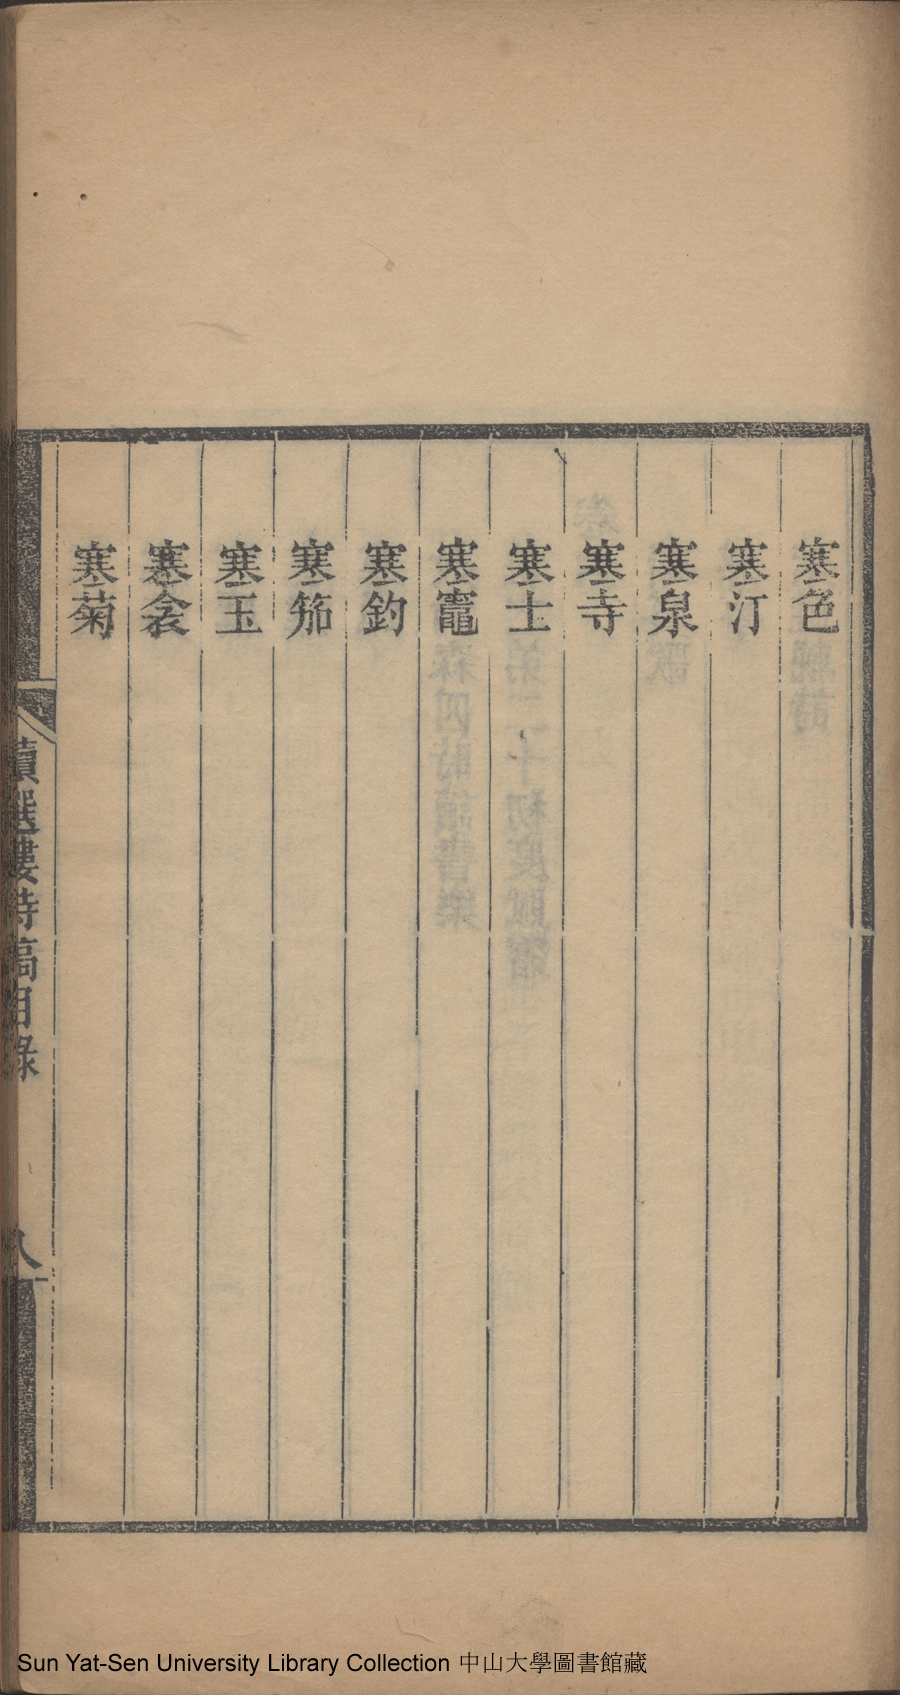 寒色
寒汀
寒泉
寒寺
寒士
寒竈
寒釣
寒笳
寒玉
寒衾
寒菊
讀選樓詩稿目錄
八
Sun Yat-Sen University Library Collection 中山大學圖書館藏